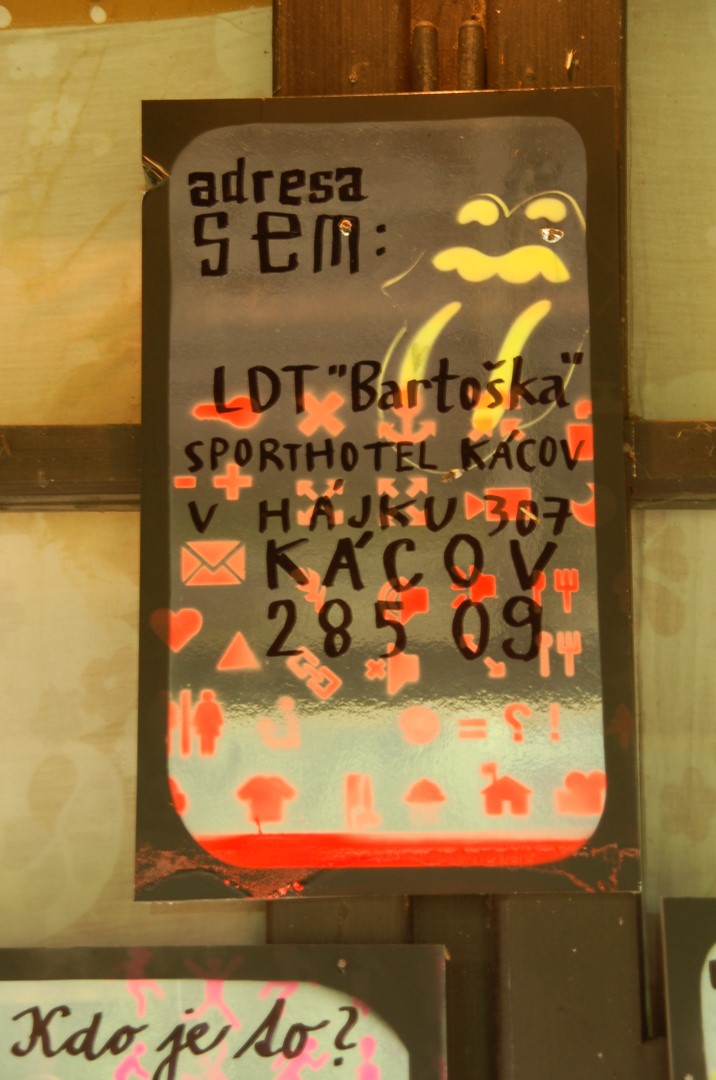 adresa
sem:
LDT "Bartoška"
SPORTHOTEL KÁCOV
V HÁJKU 307
KÁCOV
285 09
= ? !
Kdo je to?